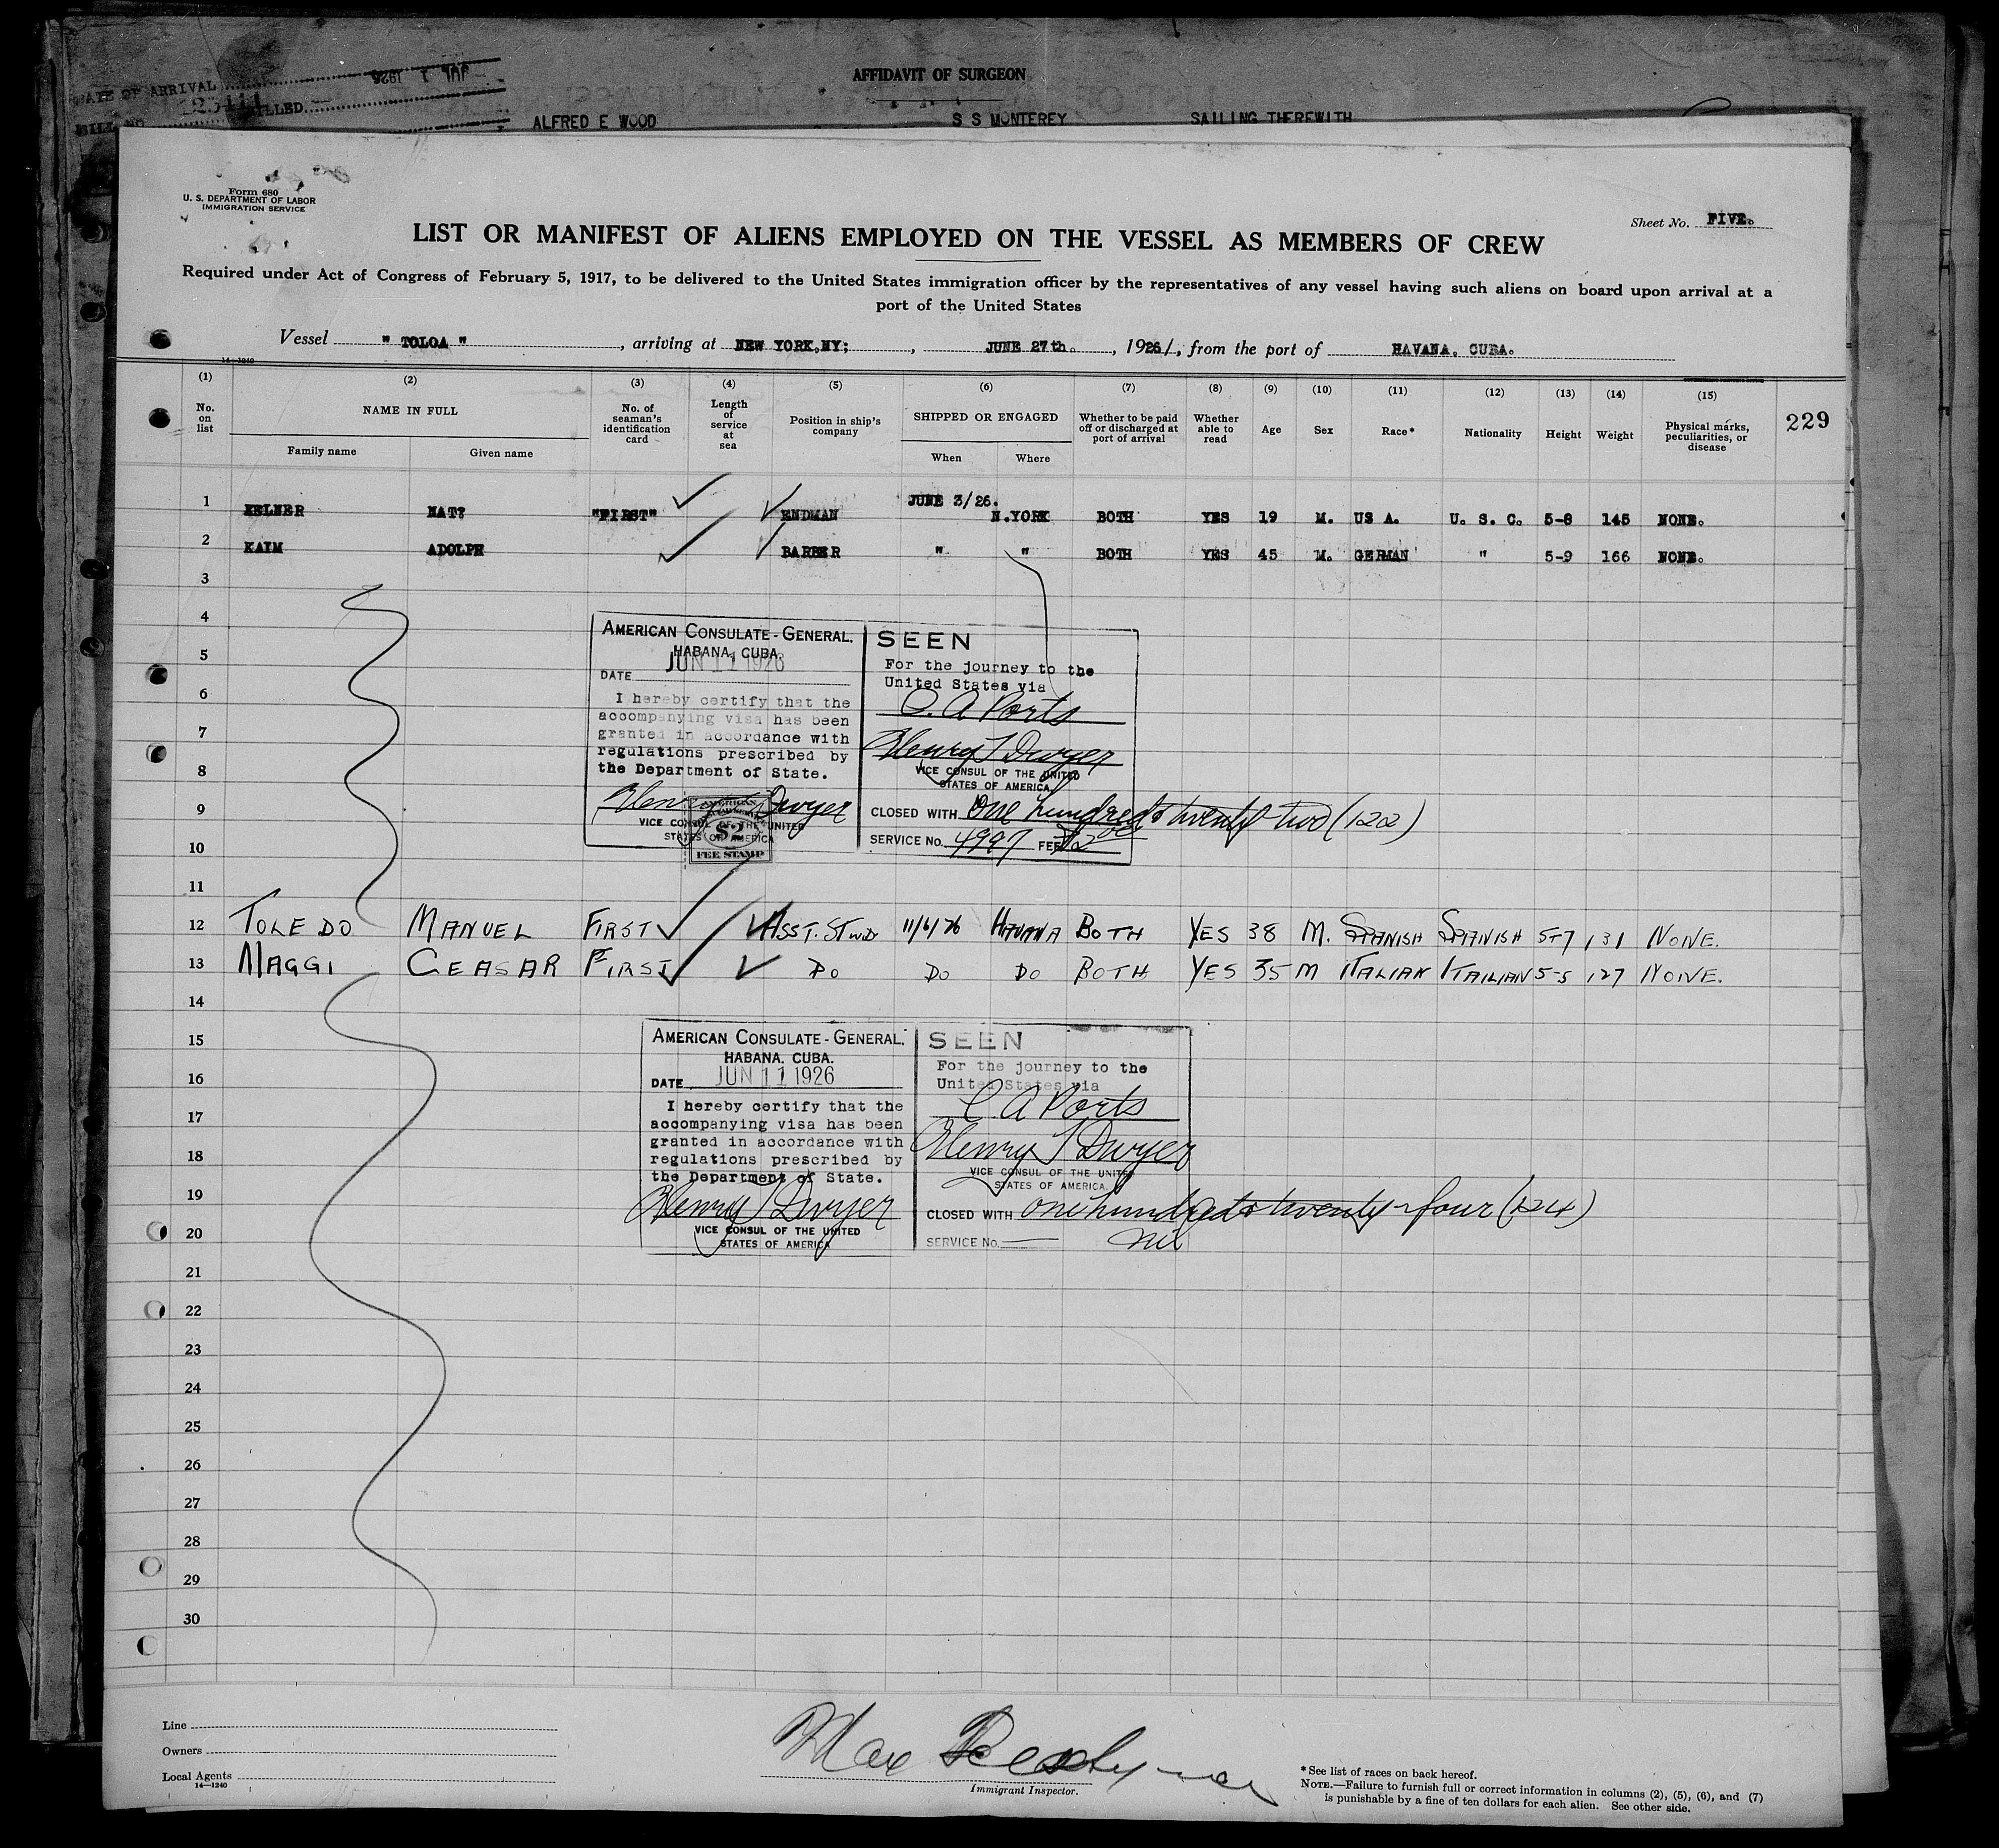 DATE OF ARRIVAL JUL 1 1926
BILL NO. BILLED
AFFIDAVIT OF SURGEON
ALFRED E WOOD S S MONTEREY SAILING THEREWITH
Form 680
U. S. DEPARTMENT OF LABOR
IMMIGRATION SERVICE
Sheet No. FIVE.
LIST OR MANIFEST OF ALIENS EMPLOYED ON THE VESSEL AS MEMBERS OF CREW
Required under Act of Congress of February 5, 1917, to be delivered to the United States immigration officer by the representatives of any vessel having such aliens on board upon arrival at a
port of the United States
Vessel " TOLOA " , arriving at NEW YORK,NY; , JUNE 27th. , 1926/, from the port of HAVANA, CUBA.
14-1240
(1) (2) (3) (4) (5) (6) (7) (8) (9) (10) (11) (12) (13) (14) (15)
No. on list NAME IN FULL No. of seaman's identification card Length of service at sea Position in ship's company SHIPPED OR ENGAGED Whether to be paid off or discharged at port of arrival Whether able to read Age Sex Race* Nationality Height Weight Physical marks, peculiarities, or disease 229
Family name Given name When Where
1 KELNER NAT? "FIRST" ENDMAN JUNE 3/26. N.YORK BOTH YES 19 M. US A. U. S. C. 5-8 145 NONE.
2 KAIM ADOLPH BARBER " " BOTH YES 45 M. GERMAN " 5-9 166 NONE.
3
4
5
6
7
8
9
10
11
AMERICAN CONSULATE-GENERAL.
HABANA, CUBA.
DATE JUN 11 1926
I hereby certify that the
accompanying visa has been
granted in accordance with
regulations prescribed by
the Department of State.
Henry T Dwyer
VICE CONSUL OF THE UNITED
STATES OF AMERICA
AMERICAN
$2
FEE STAMP
SEEN
For the journey to the
United States via
C. A Ports
Henry T Dwyer
VICE CONSUL OF THE UNITED
STATES OF AMERICA.
CLOSED WITH One hundred & twenty-two (122)
SERVICE NO. 4997 FEE $2 00
12 TOLEDO MANUEL FIRST ASST. STWD 11/6/26 HAVANA BOTH YES 38 M. SPANISH SPANISH 5-7 131 NONE.
13 MAGGI CEASAR FIRST DO DO DO BOTH YES 35 M ITALIAN ITAILIAN 5-5 127 NONE.
14
15
16
17
18
19
20
21
22
23
24
25
26
27
28
29
30
AMERICAN CONSULATE-GENERAL.
HABANA. CUBA.
DATE JUN 11 1926
I hereby certify that the
accompanying visa has been
granted in accordance with
regulations prescribed by
the Department of State.
Henry T Dwyer
VICE CONSUL OF THE UNITED
STATES OF AMERICA
SEEN
For the journey to the
United States via
C. A Ports
Henry T Dwyer
VICE CONSUL OF THE UNITED
STATES OF AMERICA.
CLOSED WITH one hundred & twenty-four (124)
SERVICE NO. — nil
Line
Owners
Local Agents
14—1240
Max
Immigrant Inspector.
*See list of races on back hereof.
NOTE.—Failure to furnish full or correct information in columns (2), (5), (6), and (7)
is punishable by a fine of ten dollars for each alien. See other side.